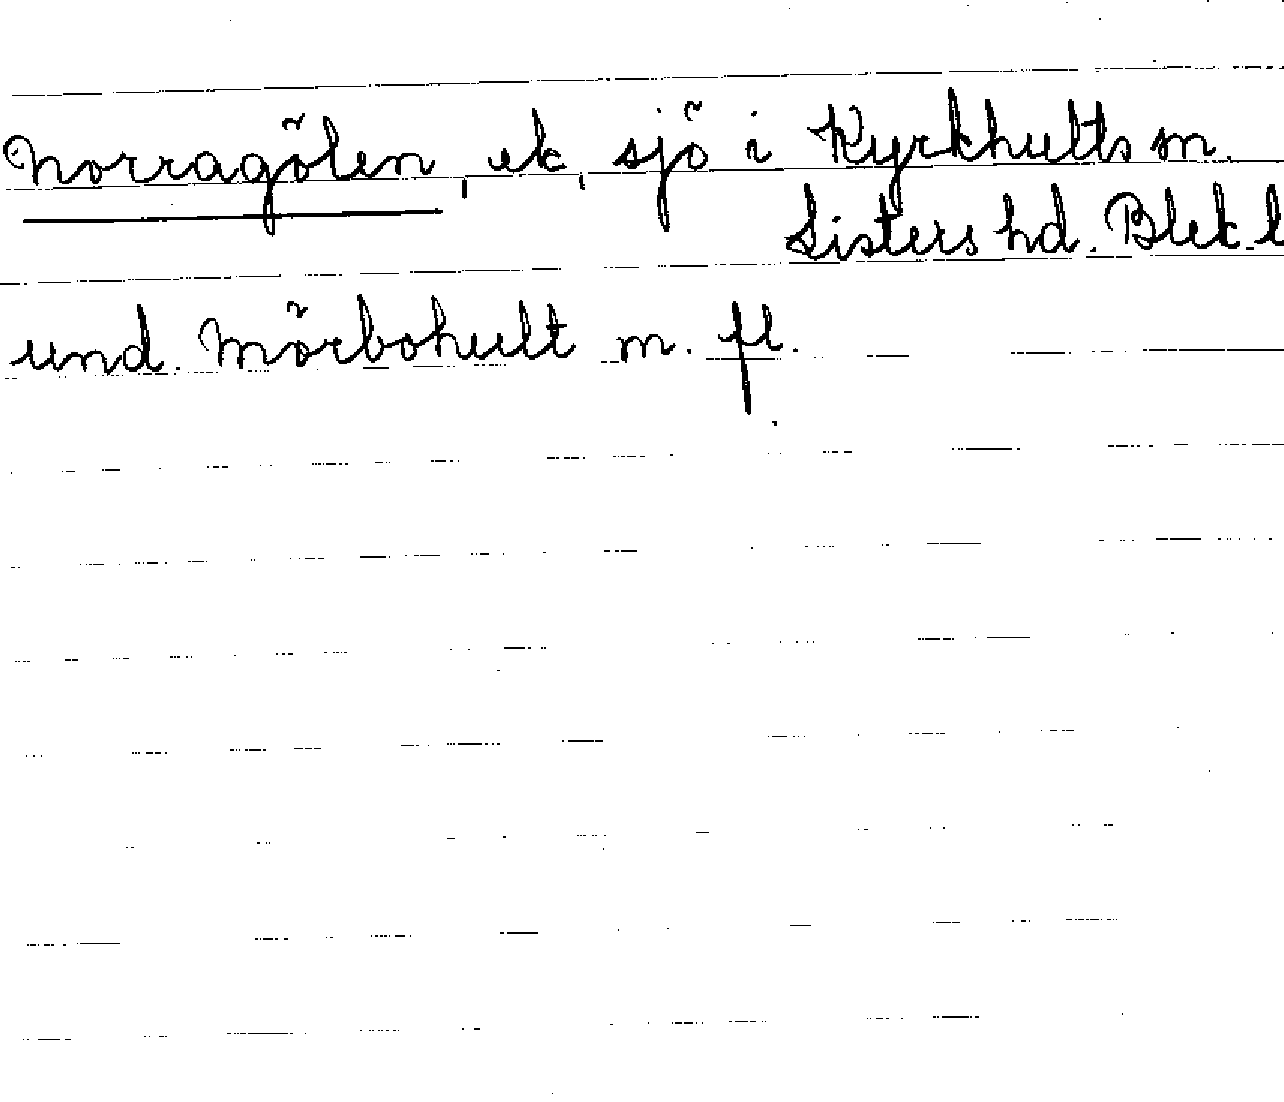 Norragölen, ek, sjö i Kyrkhults sn.
Listers hd. Blek. l
und. Mörbohult m. fl.